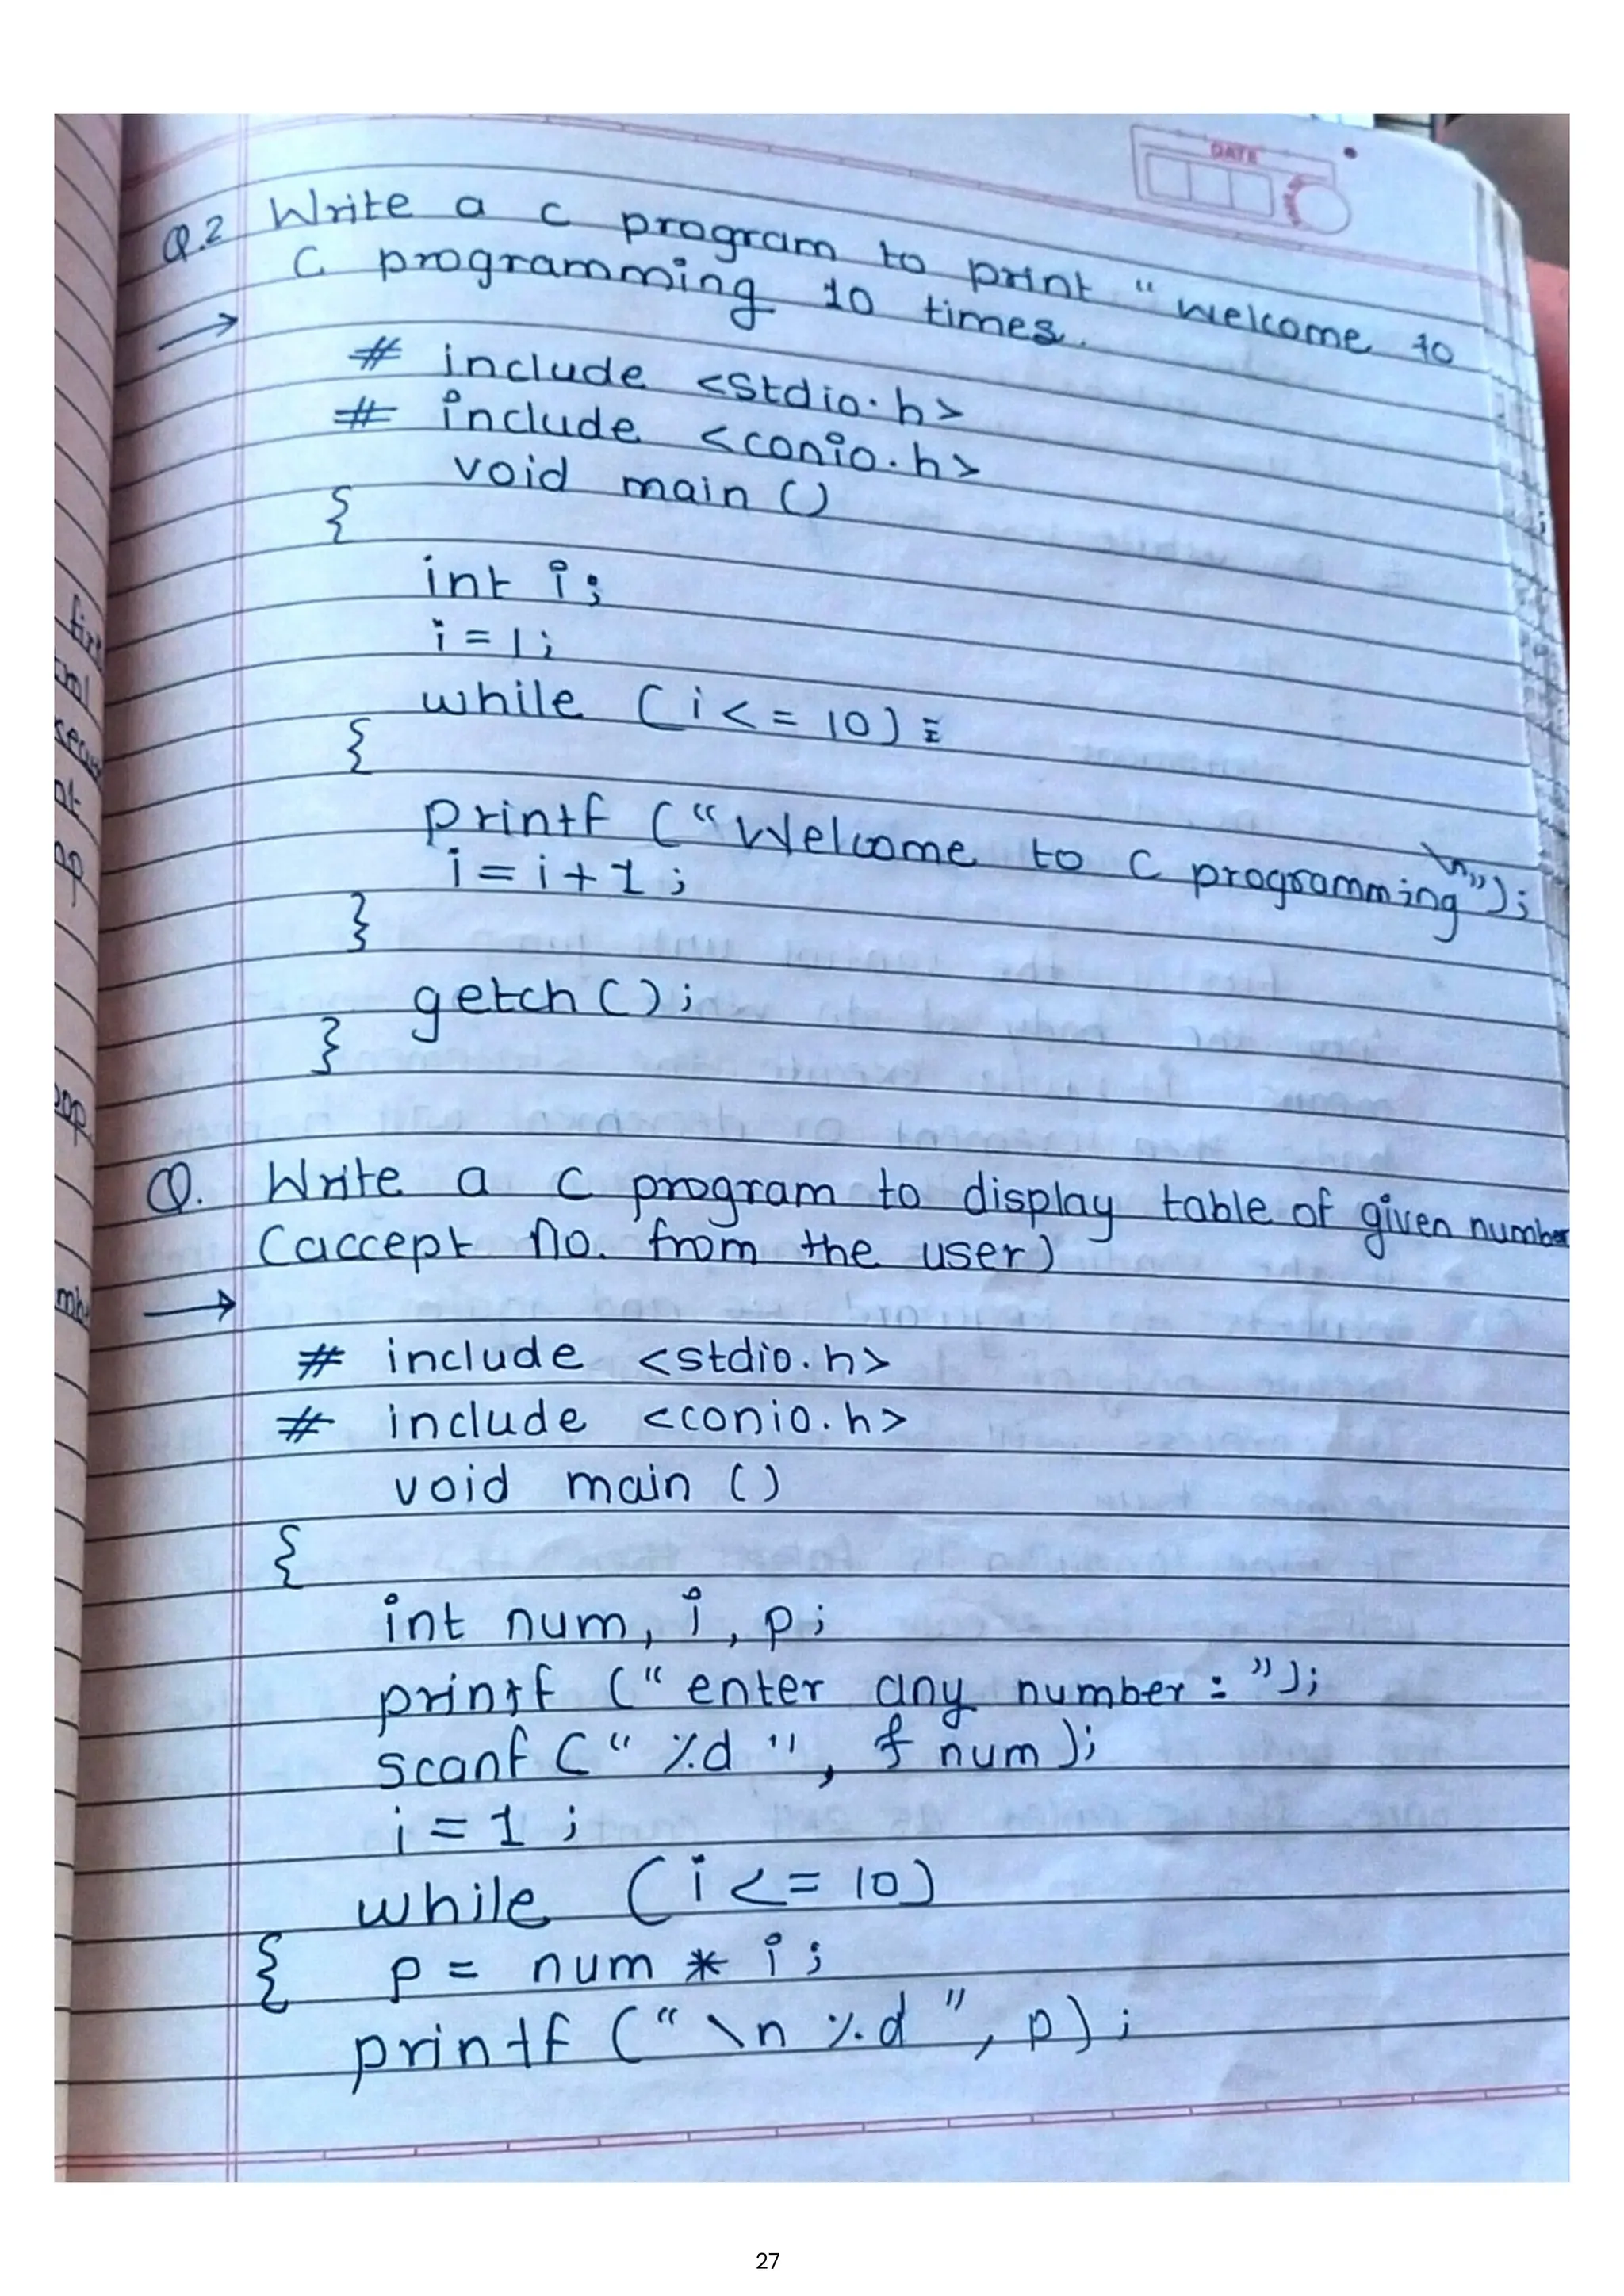 DATE
Q.2 Write a c program to print "welcome to
C programming 10 times.
# include <stdio.h>
# include <conio.h>
void main ()
{
int i;
i = 1;
while (i <= 10)
{
printf ("Welcome to C programming\n");
i = i + 1;
}
getch ();
}
Q. Write a c program to display table of given number
(accept no. from the user)
# include <stdio.h>
# include <conio.h>
void main ()
{
int num, i, p;
printf ("enter any number: ");
scanf (" %d ", & num );
i = 1 ;
while (i <= 10)
{ p = num * i ;
printf ("\n %d ", p) ;
27